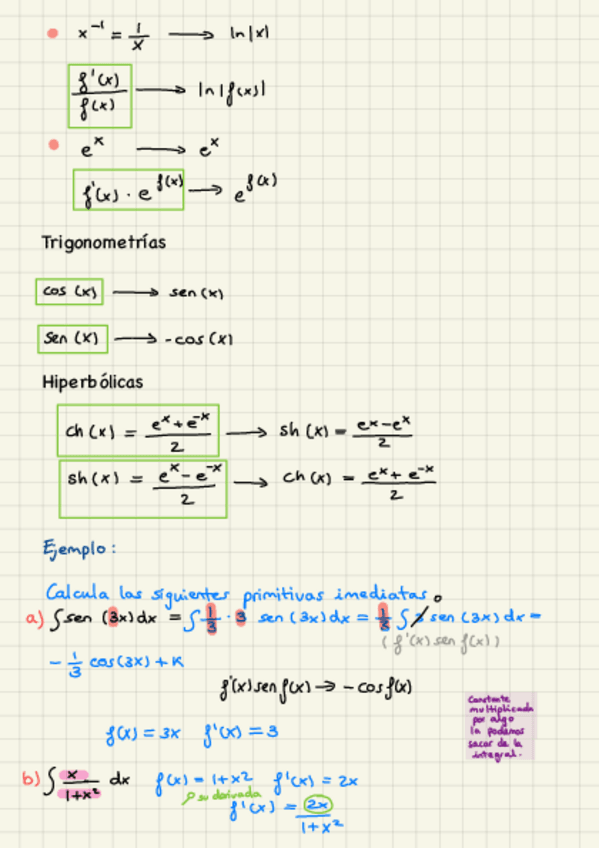 x⁻¹ = 1/x → ln|x|
f'(x)/f(x) → ln|f(x)|
eˣ → eˣ
f'(x) · e^f(x) → e^f(x)
Trigonometrías
cos (x) → sen (x)
sen (x) → -cos (x)
Hiperbólicas
ch (x) = (eˣ + e⁻ˣ)/2 → sh (x) = (eˣ - eˣ)/2
sh (x) = (eˣ - e⁻ˣ)/2 → ch (x) = (eˣ + e⁻ˣ)/2
Ejemplo:
Calcula las siguientes primitivas imediatas.
a) ∫ sen (3x) dx = ∫ 1/3 · 3 sen (3x) dx = 1/3 ∫ 3 sen (3x) dx =
(f'(x) sen f(x))
- 1/3 cos (3x) + K
f'(x) sen f(x) → - cos f(x)
Constante
multiplicada
por algo
la podemos
sacar de la
integral.
f(x) = 3x f'(x) = 3
b) ∫ x/(1+x²) dx f(x) = 1+x² f'(x) = 2x
su derivada
f'(x) = 2x/(1+x²)